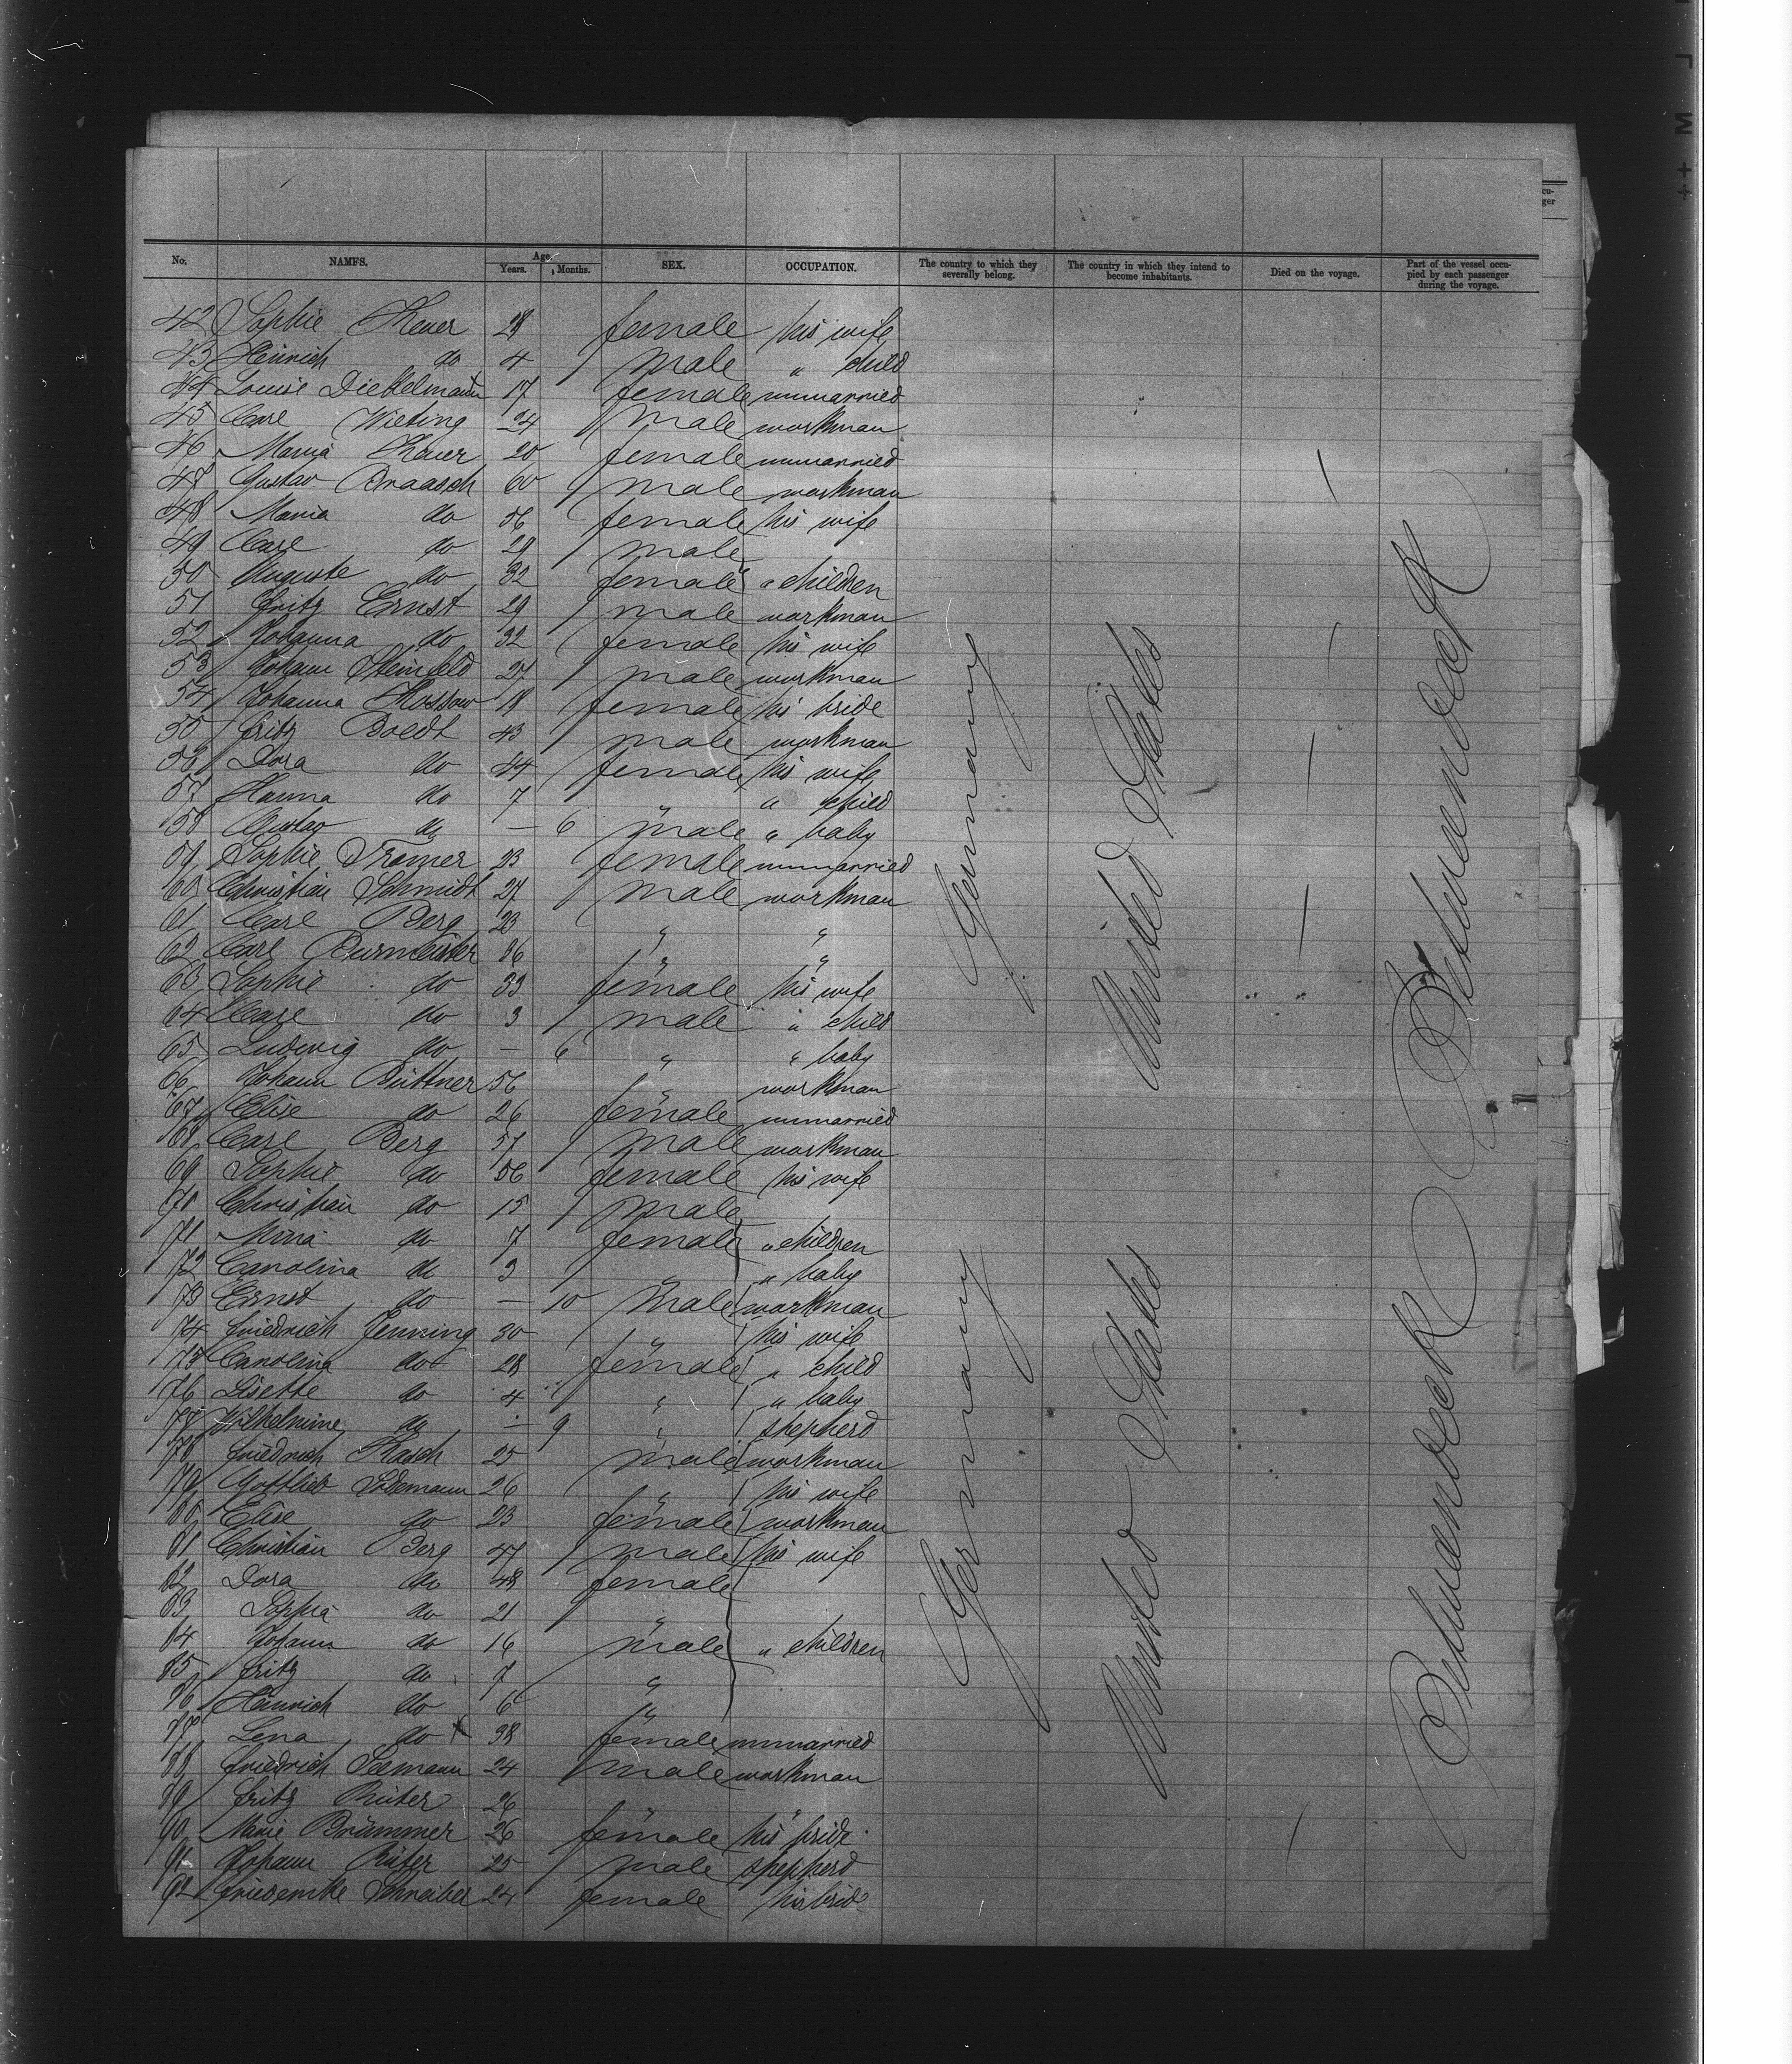 No. NAMES. Age. Years. Months. SEX. OCCUPATION. The country to which they severally belong. The country in which they intend to become inhabitants. Died on the voyage. Part of the vessel occupied by each passenger during the voyage.
42 Sophie 28 female his wife
43 Heinrich do 4 male " child
44 Louise Diekelmann 17 female unmarried
45 Carl Wieting 24 male workman
46 Maria 20 female unmarried
47 Gustav Braasch 60 male workman
48 Maria do 56 female his wife
49 Carl do 29 male
50 Auguste do 32 female " children
51 Fritz Ernst 29 male workman
52 Johanna do 32 female his wife
53 Johann Steinfeld 27 male workman
54 Johanna Kossow 18 female his bride
55 Fritz Boldt 43 male workman
56 Dora do 44 female his wife
57 Hanna do 7 " " child
58 Gustav do — 6 male " baby
59 Sophie Tramer 23 female unmarried
60 Christian Schmidt 27 male workman
61 Carl Berg 23 " "
62 Carl Burmeister 36 " "
63 Sophie do 33 female his wife
64 Carl do 3 male " child
65 Ludwig do — 6 " " baby
66 Johann Büttner 56 " workman
67 Elise do 26 female unmarried
68 Carl Berg 57 male workman
69 Sophie do 56 female his wife
70 Christian do 15 male
71 Mina do 7 female " children
72 Carolina do 3 " " baby
73 Ernst do — 10 male workman
74 Friedrich Jenning 30 " his wife
75 Carolina do 28 female " child
76 Lisette do 4 " " baby
77 Wilhelmine do — 9 " shepherd
78 Friedrich Rasch 25 male workman
79 Gottlieb Lödemann 26 " his wife
80 Elise do 23 female workman
81 Christian Berg 47 male his wife
82 Dora do 48 female
83 Sophia do 21 "
84 Johann do 16 male " children
85 Fritz do 7 "
86 Heinrich do 6 "
87 Lena do 38 female unmarried
88 Friedrich Seemann 24 male workman
89 Fritz Rüter 26 " "
90 Marie Brümmer 26 female his bride
91 Johann Rüter 25 male shepherd
92 Friederike Schreiber 24 female his bride
Germany
United States
Betweendeck
Germany
United States
Betweendeck